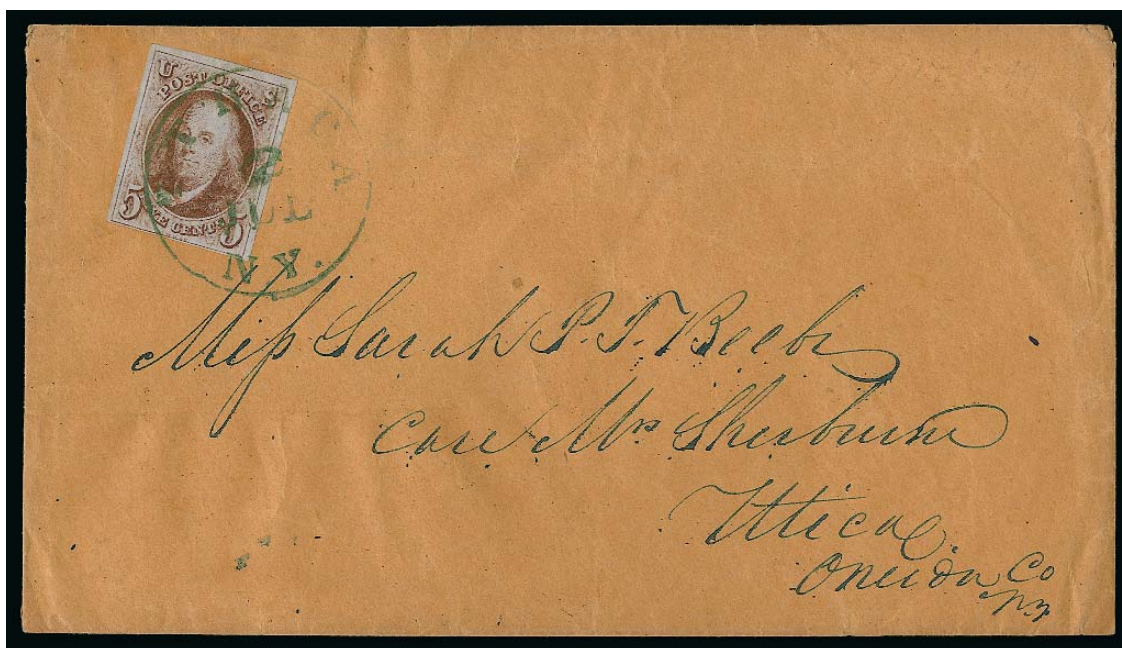 U S
POST OFFICE
5 CENTS 5
2
JUL
N.Y.
Miss Sarah P. T. Beebe
Care Mrs Sherburne
Uttica
Oneida Co
N.Y.